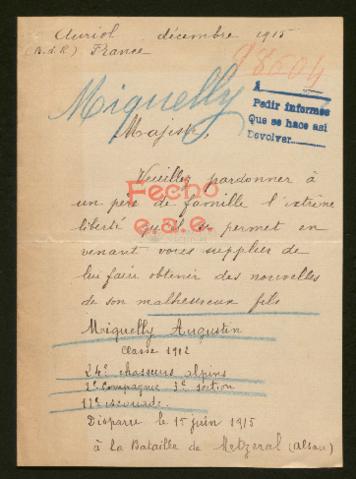 Auriol décembre 1915
(B. d. R) France
18604
Miquelly
A
Pedir informes
Que se hace asi
Devolver
Majesté,
Veuillez pardonner à
Fecho
un père de famille l'extrême
e.a.e.
liberté qu'il se permet en
venant vous supplier de
lui fair obtenir des nouvelles
de son malheureux fils
Miquelly Augustin
Classe 1912
24e chasseurs alpins
2e Compagnie 3e section
11e escouade.
Disparu le 15 juin 1915
à la Bataille de Metzeral (Alsace)